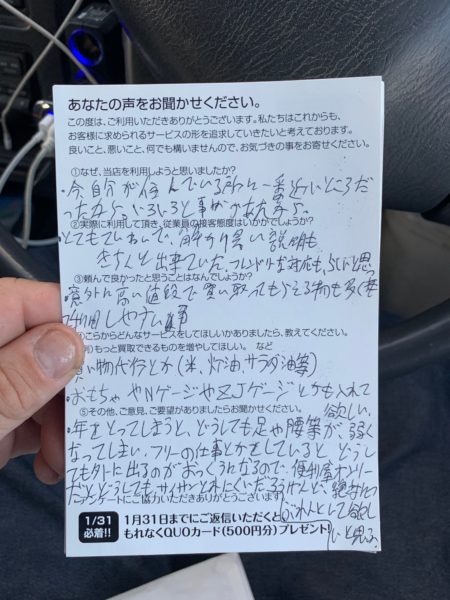 あなたの声をお聞かせください。
この度は、ご利用いただきありがとうございます。私たちはこれからも、
お客様に求められるサービスの形を追求していきたいと考えております。
良いこと、悪いこと、何でも構いませんので、お気づきの事をお寄せください。
①なぜ、当店を利用しようと思いましたか?
・今自分が住んでいる所に一番近いところだ
ったから、いろいろと事が
②実際に利用して頂き、従業員の接客態度はいかがでしょうか?
・とてもていねいで、解かり易い説明も、
きちんと出来ていた。フレンドリな対応も、らしいと思う
③頼んで良かったと思うことはなんでしょうか?
・意外に高い値段で買い取ってもらえる物も多く
利用しやすい
こらからどんなサービスをしてほしいかありましたら、教えてください。
もっと買取できるものを増やしてほしい。 など
買い物代行とか(米、灯油、サラダ油等)
・おもちゃやNゲージやZJゲージとかも入れて
欲しい、
⑤その他、ご意見、ご要望がありましたらお聞かせください。
・年をとってしまうと、どうしても足や腰等が、弱く
なってしまい、フリーの仕事とかをしていると、どうし
ても外に出るのがおっくうになるので、便利屋オンリー
だと、どうしても、
アンケートにご協力いただきありがとうございます
1/31
必着!!
1月31日までにご返信いただくと
もれなくQUOカード(500円分)プレゼント!
いと思う。